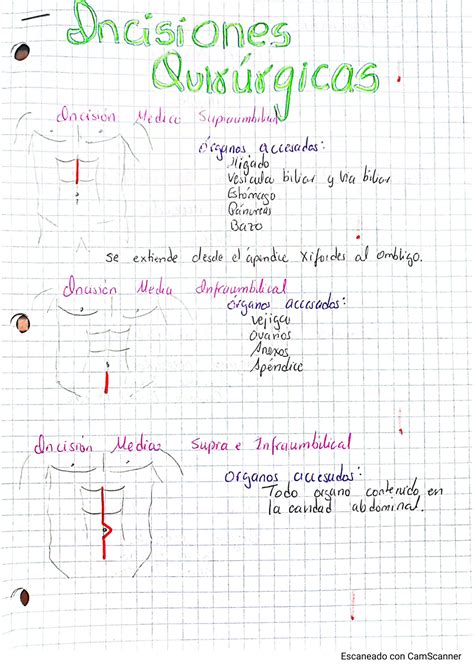 Incisiones
Quirúrgicas.
Incisión Media Supraumbilical
órganos accesados:
Hígado
Vesicula biliar y Via biliar
Estómago
Páncreas
Bazo
Se extiende desde el ápendice Xifoides al ombligo.
Incisión Media Infraumbilical
órganos accesados:
vejiga
ovarios
Anexos
Apéndice
Incisión Media Supra e Infraumbilical
organos accesados:
Todo organo contenido en
la cavidad abdominal.
Escaneado con CamScanner